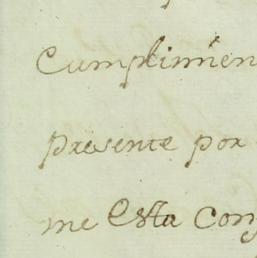 Cumplimien
presente por
me esta con